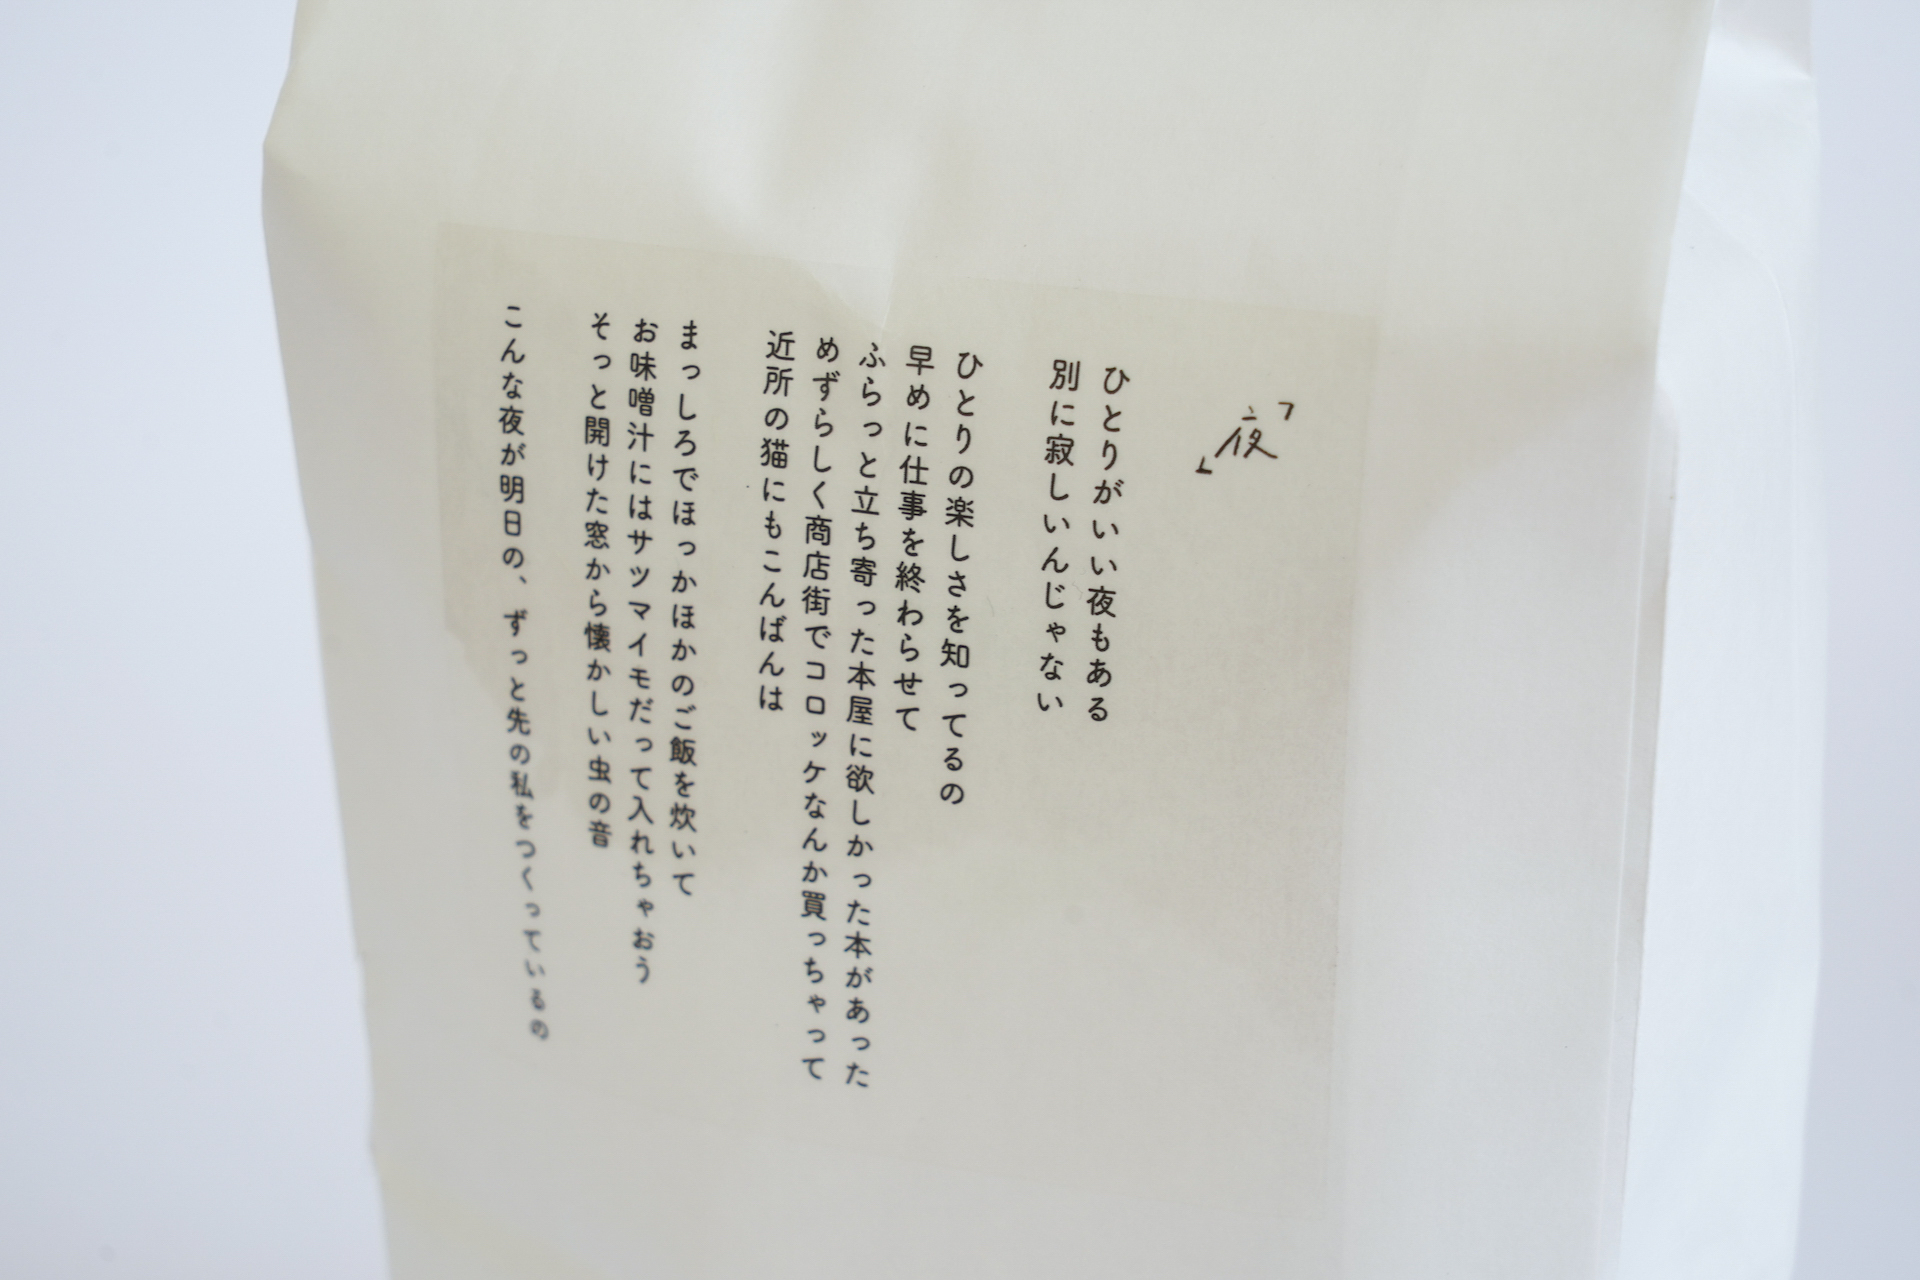 「夜」
ひとりがいい夜もある
別に寂しいんじゃない
ひとりの楽しさを知ってるの
早めに仕事を終わらせて
ふらっと立ち寄った本屋に欲しかった本があった
めずらしく商店街でコロッケなんか買っちゃって
近所の猫にもこんばんは
まっしろでほっかほかのご飯を炊いて
お味噌汁にはサツマイモだって入れちゃおう
そっと開けた窓から懐かしい虫の音
こんな夜が明日の、ずっと先の私をつくっているの